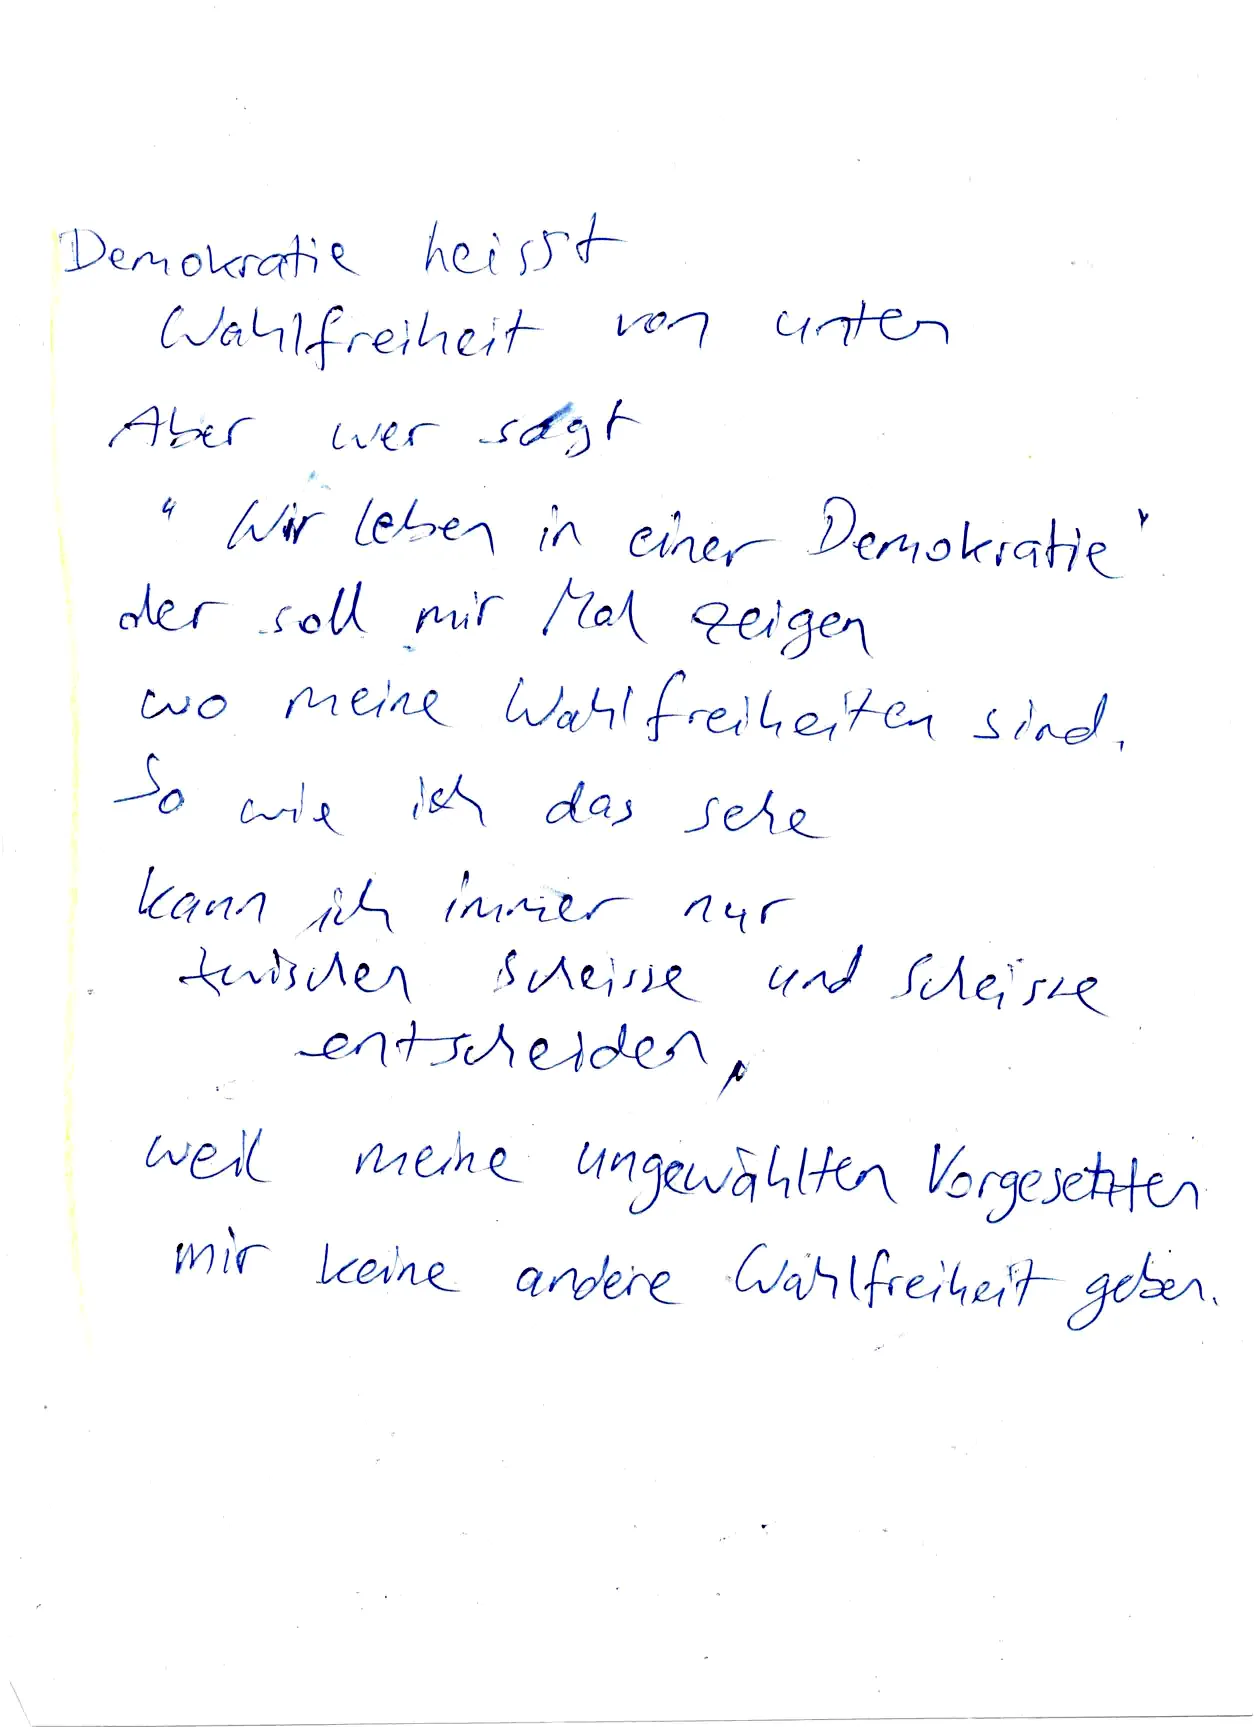 Demokratie heisst
Wahlfreiheit von unten
Aber wer sagt
"Wir leben in einer Demokratie"
der soll mir Mal zeigen
wo meine Wahlfreiheiten sind.
So wie ich das sehe
kann ich immer nur
zwischen Scheisse und Scheisse
entscheiden,
weil meine ungewählten Vorgesetzten
mir keine andere Wahlfreiheit geben.